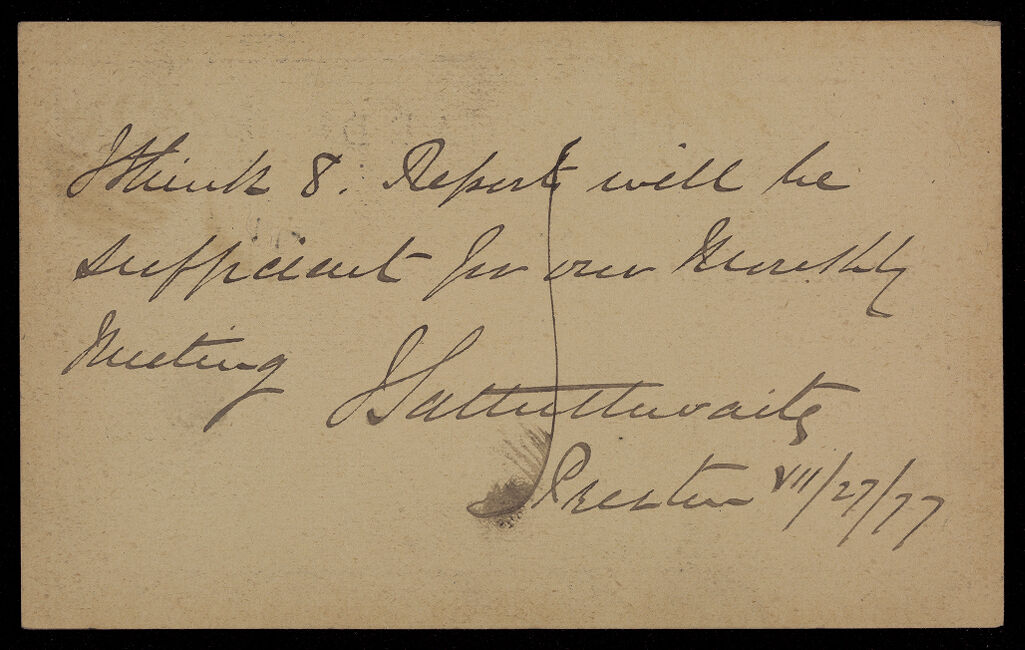 I think 8. Reports will be
sufficient for our Monthly
Meeting
J Satterthwaite
Preston VII/27/77